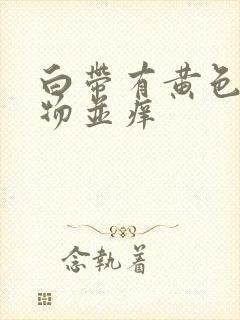 白帶有黄色
物並痒
念執着